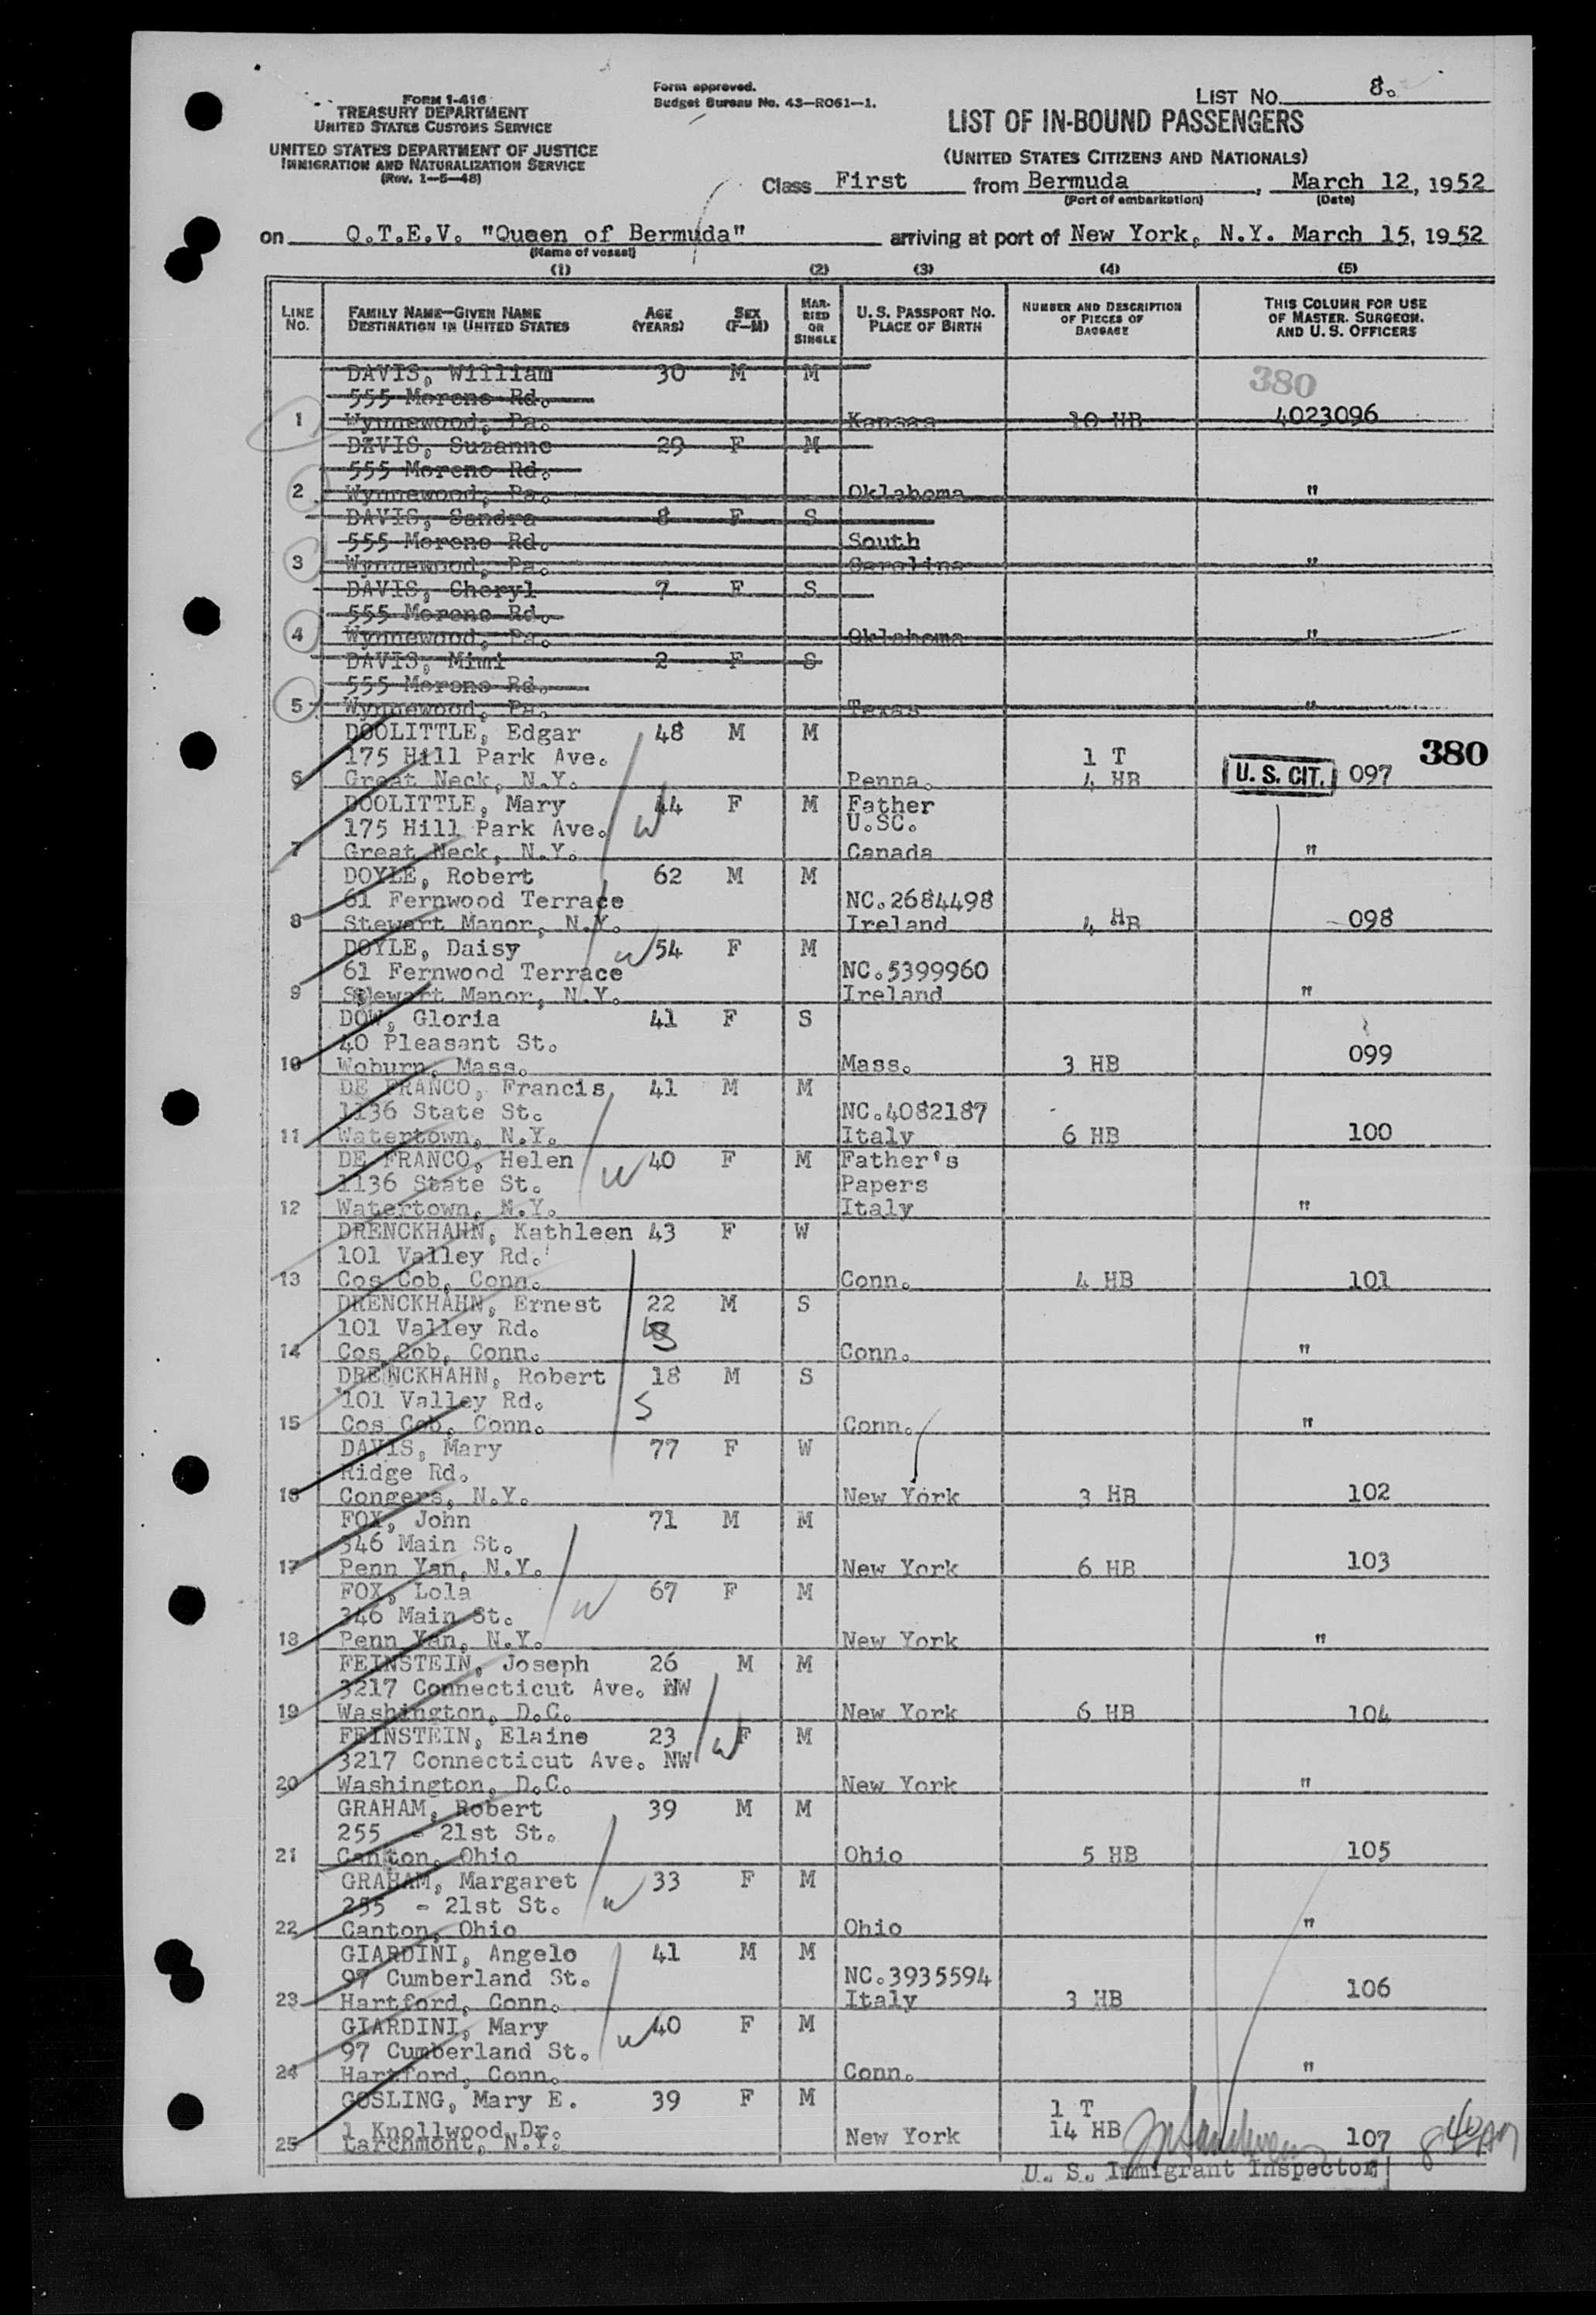 FORM I-416
TREASURY DEPARTMENT
UNITED STATES CUSTOMS SERVICE
UNITED STATES DEPARTMENT OF JUSTICE
IMMIGRATION AND NATURALIZATION SERVICE
(Rev. 1-5-48)
Form approved.
Budget Bureau No. 43-R061-1.
LIST NO. 8.
LIST OF IN-BOUND PASSENGERS
(UNITED STATES CITIZENS AND NATIONALS)
Class First from Bermuda, March 12, 1952
(Port of embarkation) (Date)
on Q.T.E.V. "Queen of Bermuda" arriving at port of New York, N.Y. March 15, 1952
(Name of vessel)
(1) (2) (3) (4) (5)
LINE No. FAMILY NAME-GIVEN NAME DESTINATION IN UNITED STATES AGE (YEARS) SEX (F-M) MARRIED OR SINGLE U. S. PASSPORT NO. PLACE OF BIRTH NUMBER AND DESCRIPTION OF PIECES OF BAGGAGE THIS COLUMN FOR USE OF MASTER. SURGEON. AND U. S. OFFICERS
DAVIS, William 30 M M 380
555 Moreno Rd.
1 Wynnewood, Pa. Kansas 10 HB 4023096
DAVIS, Suzanne 29 F M
555 Moreno Rd.
2 Wynnewood, Pa. Oklahoma "
DAVIS, Sandra 8 F S
555 Moreno Rd. South
3 Wynnewood, Pa. Carolina "
DAVIS, Cheryl 7 F S
555 Moreno Rd.
4 Wynnewood, Pa. Oklahoma "
DAVIS, Mimi 2 F S
555 Moreno Rd.
5 Wynnewood, Pa. Texas "
DOOLITTLE, Edgar 48 M M
175 Hill Park Ave. 1 T 380
6 Great Neck, N.Y. Penna. 4 HB U. S. CIT. 097
DOOLITTLE, Mary 44 F M Father
175 Hill Park Ave. W U.SC.
7 Great Neck, N.Y. Canada "
DOYLE, Robert 62 M M
61 Fernwood Terrace NC.2684498
8 Stewart Manor, N.Y. Ireland 4 HB 098
DOYLE, Daisy W 54 F M
61 Fernwood Terrace NC.5399960
9 Stewart Manor, N.Y. Ireland "
DOW, Gloria 41 F S
40 Pleasant St.
10 Woburn, Mass. Mass. 3 HB 099
DE FRANCO, Francis 41 M M
1136 State St. NC.4082187
11 Watertown, N.Y. Italy 6 HB 100
DE FRANCO, Helen W 40 F M Father's
1136 State St. Papers
12 Watertown, N.Y. Italy "
DRENCKHAHN, Kathleen 43 F W
101 Valley Rd.
13 Cos Cob, Conn. Conn. 4 HB 101
DRENCKHAHN, Ernest 22 M S
101 Valley Rd. S
14 Cos Cob, Conn. Conn. "
DRENCKHAHN, Robert 18 M S
101 Valley Rd. S
15 Cos Cob, Conn. Conn. "
DAVIS, Mary 77 F W
Ridge Rd.
16 Congers, N.Y. New York 3 HB 102
FOX, John 71 M M
346 Main St.
17 Penn Yan, N.Y. New York 6 HB 103
FOX, Lola 67 F M
346 Main St. W
18 Penn Yan, N.Y. New York "
FEINSTEIN, Joseph 26 M M
3217 Connecticut Ave. NW
19 Washington, D.C. New York 6 HB 104
FEINSTEIN, Elaine 23 W F M
3217 Connecticut Ave. NW
20 Washington, D.C. New York "
GRAHAM, Robert 39 M M
255 - 21st St.
21 Canton, Ohio Ohio 5 HB 105
GRAHAM, Margaret 33 F M
255 - 21st St. W
22 Canton, Ohio Ohio "
GIARDINI, Angelo 41 M M
97 Cumberland St. NC.3935594
23 Hartford, Conn. Italy 3 HB 106
GIARDINI, Mary W 40 F M
97 Cumberland St.
24 Hartford, Conn. Conn. "
GOSLING, Mary E. 39 F M 1 T
1 Knollwood Dr. 14 HB
25 Larchmont, N.Y. New York 107 8 40 AM
U. S. Immigrant Inspector